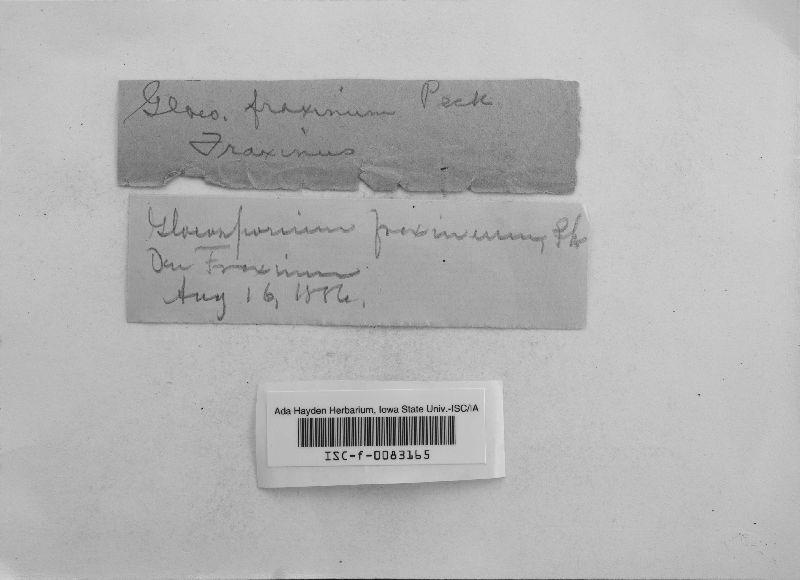 Gloeo. fraxinium Peck
Fraxinus
Gloeosporium fraxineum, Pk
On Fraxinum
Aug 16, 1886.
Ada Hayden Herbarium, Iowa State Univ.-ISC/IA
ISC-f-0083165